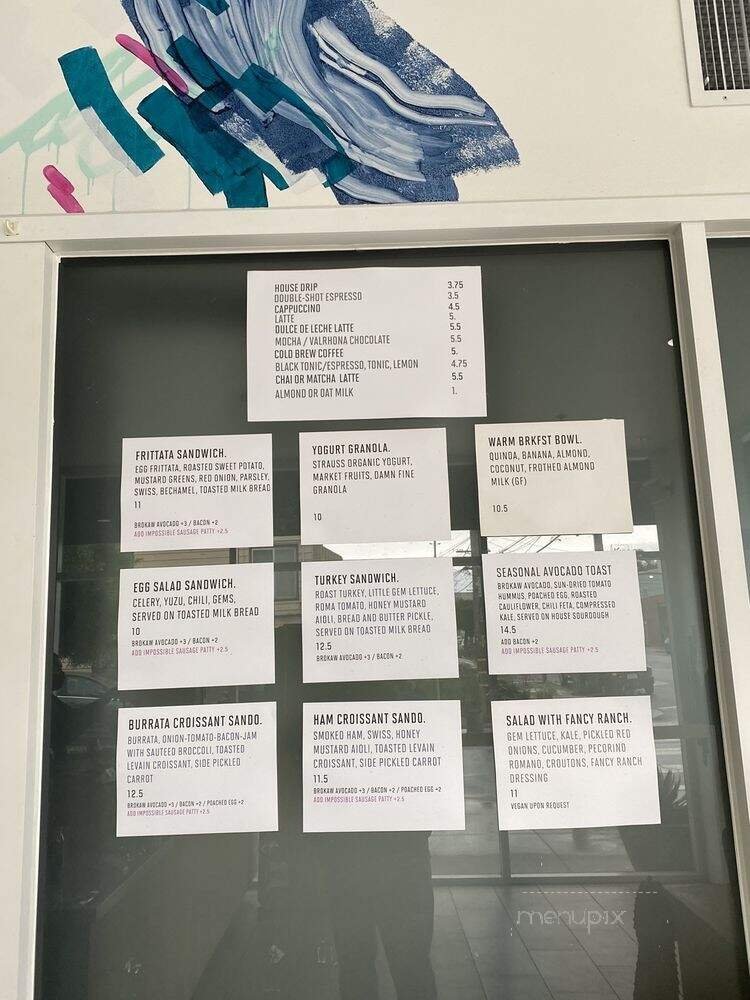 HOUSE DRIP 3.75
DOUBLE-SHOT ESPRESSO 3.5
CAPPUCCINO 4.5
LATTE 5.
DULCE DE LECHE LATTE 5.5
MOCHA / VALRHONA CHOCOLATE 5.5
COLD BREW COFFEE 5.
BLACK TONIC/ESPRESSO, TONIC, LEMON 4.75
CHAI OR MATCHA LATTE 5.5
ALMOND OR OAT MILK 1.
FRITTATA SANDWICH.
EGG FRITATA, ROASTED SWEET POTATO,
MUSTARD GREENS, RED ONION, PARSLEY,
SWISS, BECHAMEL, TOASTED MILK BREAD
11
BROKAW AVOCADO +3 / BACON +2
ADD IMPOSSIBLE SAUSAGE PATTY +2.5
YOGURT GRANOLA.
STRAUSS ORGANIC YOGURT,
MARKET FRUITS, DAMN FINE
GRANOLA
10
WARM BRKFST BOWL.
QUINOA, BANANA, ALMOND,
COCONUT, FROTHED ALMOND
MILK (GF)
10.5
EGG SALAD SANDWICH.
CELERY, YUZU, CHILI, GEMS,
SERVED ON TOASTED MILK BREAD
10
BROKAW AVOCADO +3 / BACON +2
ADD IMPOSSIBLE SAUSAGE PATTY +2.5
TURKEY SANDWICH.
ROAST TURKEY, LITTLE GEM LETTUCE,
ROMA TOMATO, HONEY MUSTARD
AIOLI, BREAD AND BUTTER PICKLE,
SERVED ON TOASTED MILK BREAD
12.5
BROKAW AVOCADO +3 / BACON +2
SEASONAL AVOCADO TOAST
BROKAW AVOCADO, SUN-DRIED TOMATO
HUMMUS, POACHED EGG, ROASTED
CAULIFLOWER, CHILI FETA, COMPRESSED
KALE, SERVED ON HOUSE SOURDOUGH
14.5
ADD BACON +2
ADD IMPOSSIBLE SAUSAGE PATTY +2.5
BURRATA CROISSANT SANDO.
BURRATA, ONION-TOMATO-BACON-JAM
WITH SAUTEED BROCCOLI, TOASTED
LEVAIN CROISSANT, SIDE PICKLED
CARROT
12.5
BROKAW AVOCADO +3 / BACON +2 / POACHED EGG +2
ADD IMPOSSIBLE SAUSAGE PATTY +2.5
HAM CROISSANT SANDO.
SMOKED HAM, SWISS, HONEY
MUSTARD AIOLI, TOASTED LEVAIN
CROISSANT, SIDE PICKLED CARROT
11.5
BROKAW AVOCADO +3 / BACON +2 / POACHED EGG +2
ADD IMPOSSIBLE SAUSAGE PATTY +2.5
SALAD WITH FANCY RANCH.
GEM LETTUCE, KALE, PICKLED RED
ONIONS, CUCUMBER, PECORINO
ROMANO, CROUTONS, FANCY RANCH
DRESSING
11
VEGAN UPON REQUEST
menupix